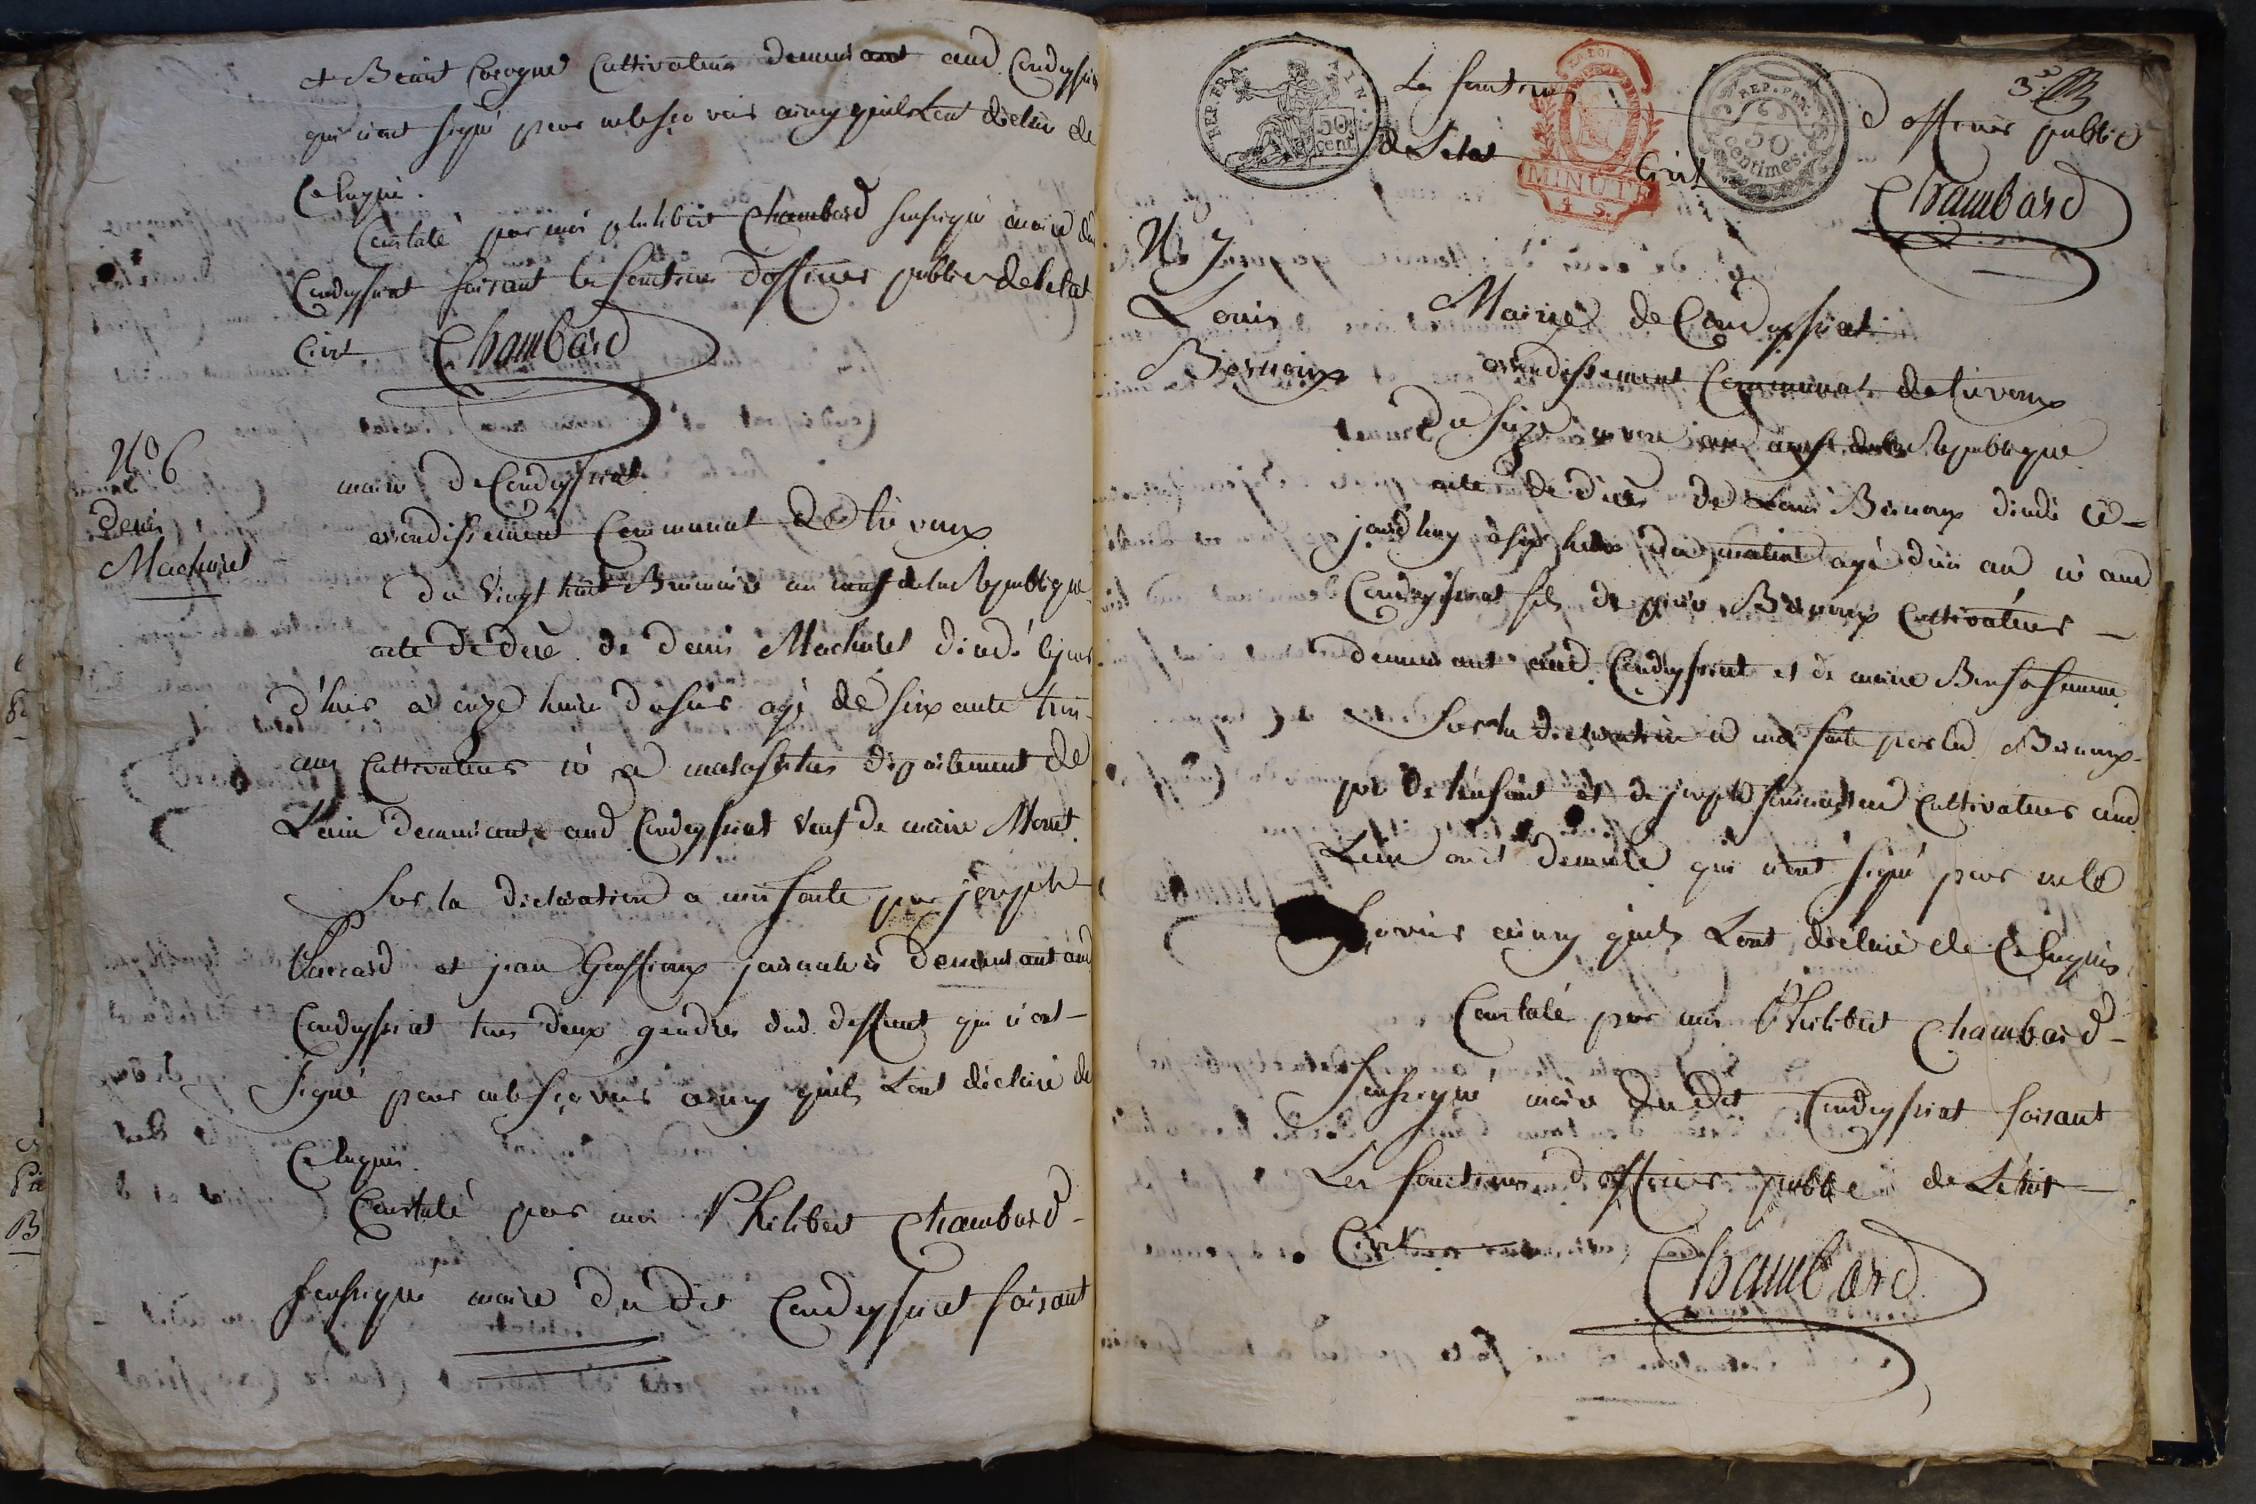 et Benoit Cocogne Cultivateur demeurant aud. Condeyssiat
qui n'ont signé pour ne le scavoir ainsy quils l'ont déclaré de
Ce Enquis.
Constaté par moi philibert Chambard soussigné maire dud
Condeyssiat faisant les fonctions d'officier public de l'etat
Civil. Chambard
N.o 6
denis
Machuret
mairie de Condeyssiat
arondissement Communal de trevoux
Du vingt huit Brumaire an neuf de la Republique
acte de décè de denis Machuret décédé le jour
d'hier à onze heure du soir agé de soixante
ans Cultivateur né a departement de
L'ain demeurant aud Condeyssiat veuf de marie Moret
Sur la declaration a moi faite par joseph
et jean Goiffoux demeurant aud
Condeyssiat tous deux gendres dud. deffunt qui n'ont
signé pour ne le sçavoir ainsy quils l'ont déclaré de
Ce Enquis.
Constaté par moi Philibert Chambard
soussigné maire du dit Condeyssiat faisant
REP. FRA.
50 cent
Les fonctions
MINUTE
4 S.
REP. FRA.
50
centimes.
d'officier public
de L'etat
Civil
Chambard
N.o 7
Louis
Bernoux
Mairie de Condeyssiat
arondissement Communal de trevoux
Du seize an neuf de la Republique
acte de décès de Louis Bernoux décédé ce
jourd'huy à six heure du matin agé d'un an né aud
Condeyssiat fils de Bernoux Cultivateur
demeurant aud. Condeyssiat et de marie sa femme
Sur la declaration a moi faite par led Bernoux
pere de l'enfant et de joseph cultivateur aud
Lieu demeure qui n'ont signé pour ne le
scavoir ainsy quils l'ont déclaré de Ce Enquis
Constaté par moi Philibert Chambard
soussigné maire du dit Condeyssiat faisant
Les fonctions d'officier public de L'état
Civil
Chambard